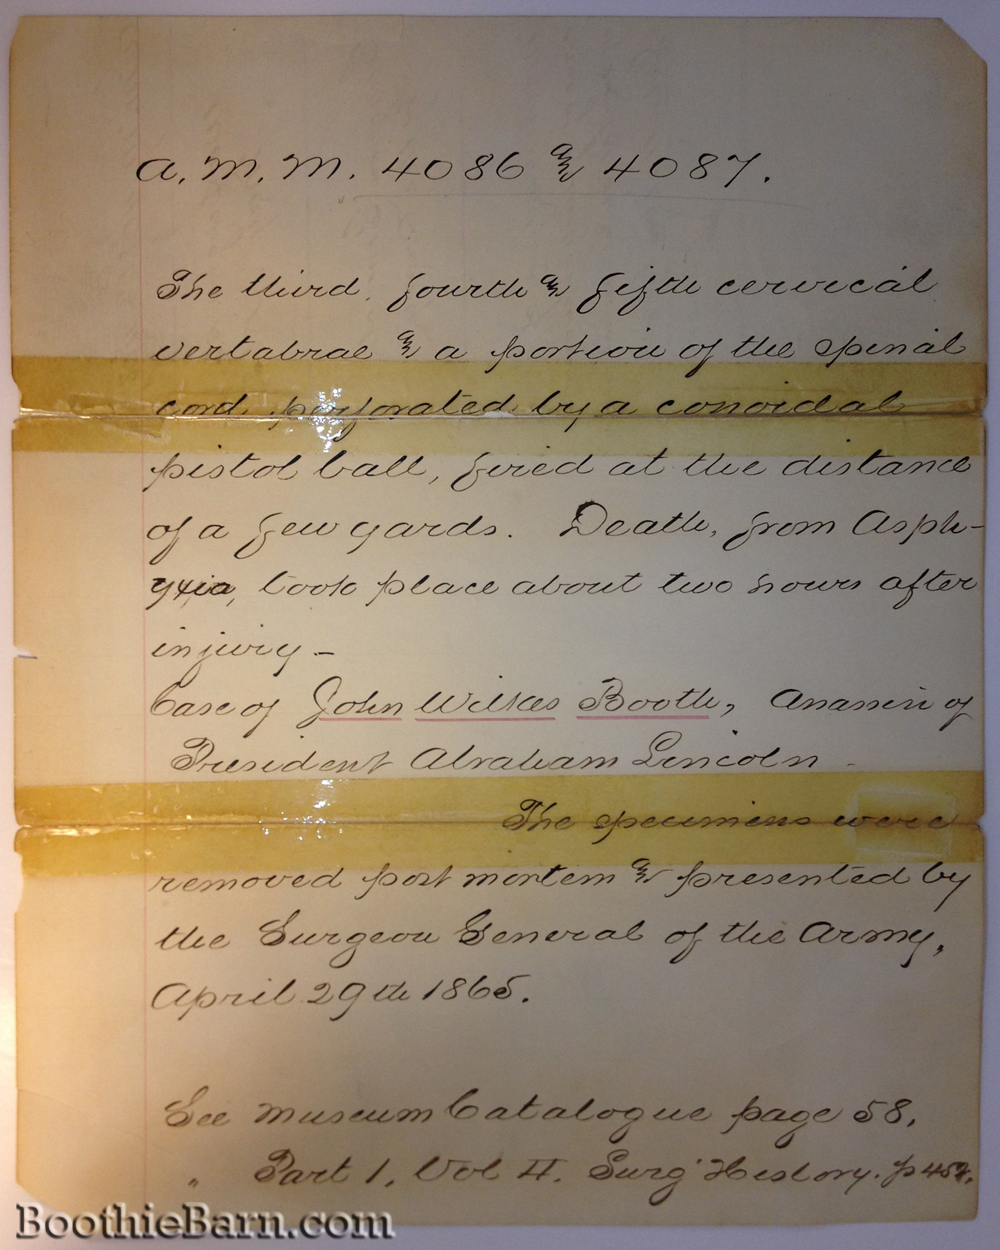 A.M.M. 4086 & 4087.
The third, fourth & fifth cervical
vertabrae & a portion of the spinal
cord, perforated by a conoidal
pistol ball, fired at the distance
of a few yards. Death, from Asph-
yxia, took place about two hours after
injury –
Case of John Wilkes Booth, Assassin of
President Abraham Lincoln –
The specimens were
removed post mortem & presented by
the Surgeon General of the Army,
April 29th 1865.
See Museum Catalogue page 58.
" Part 1, Vol II. Surg' History. p 452.
BoothieBarn.com